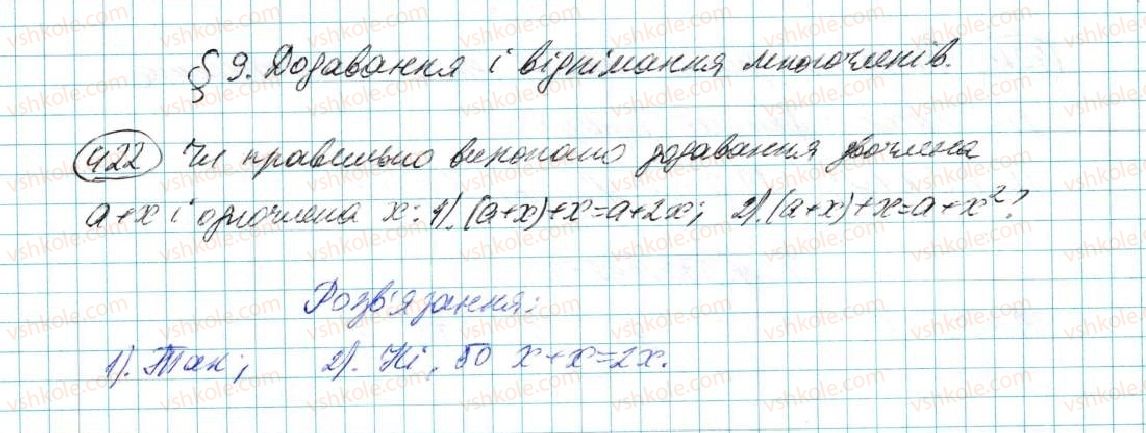 § 9. Додавання і віднімання многочленів.
422 Чи правильно виконано додавання двочлена
a+x і одночлена x: 1). (a+x)+x=a+2x; 2). (a+x)+x=a+x²?
Розв'язання:
1). Так; 2). Ні, бо x+x=2x.